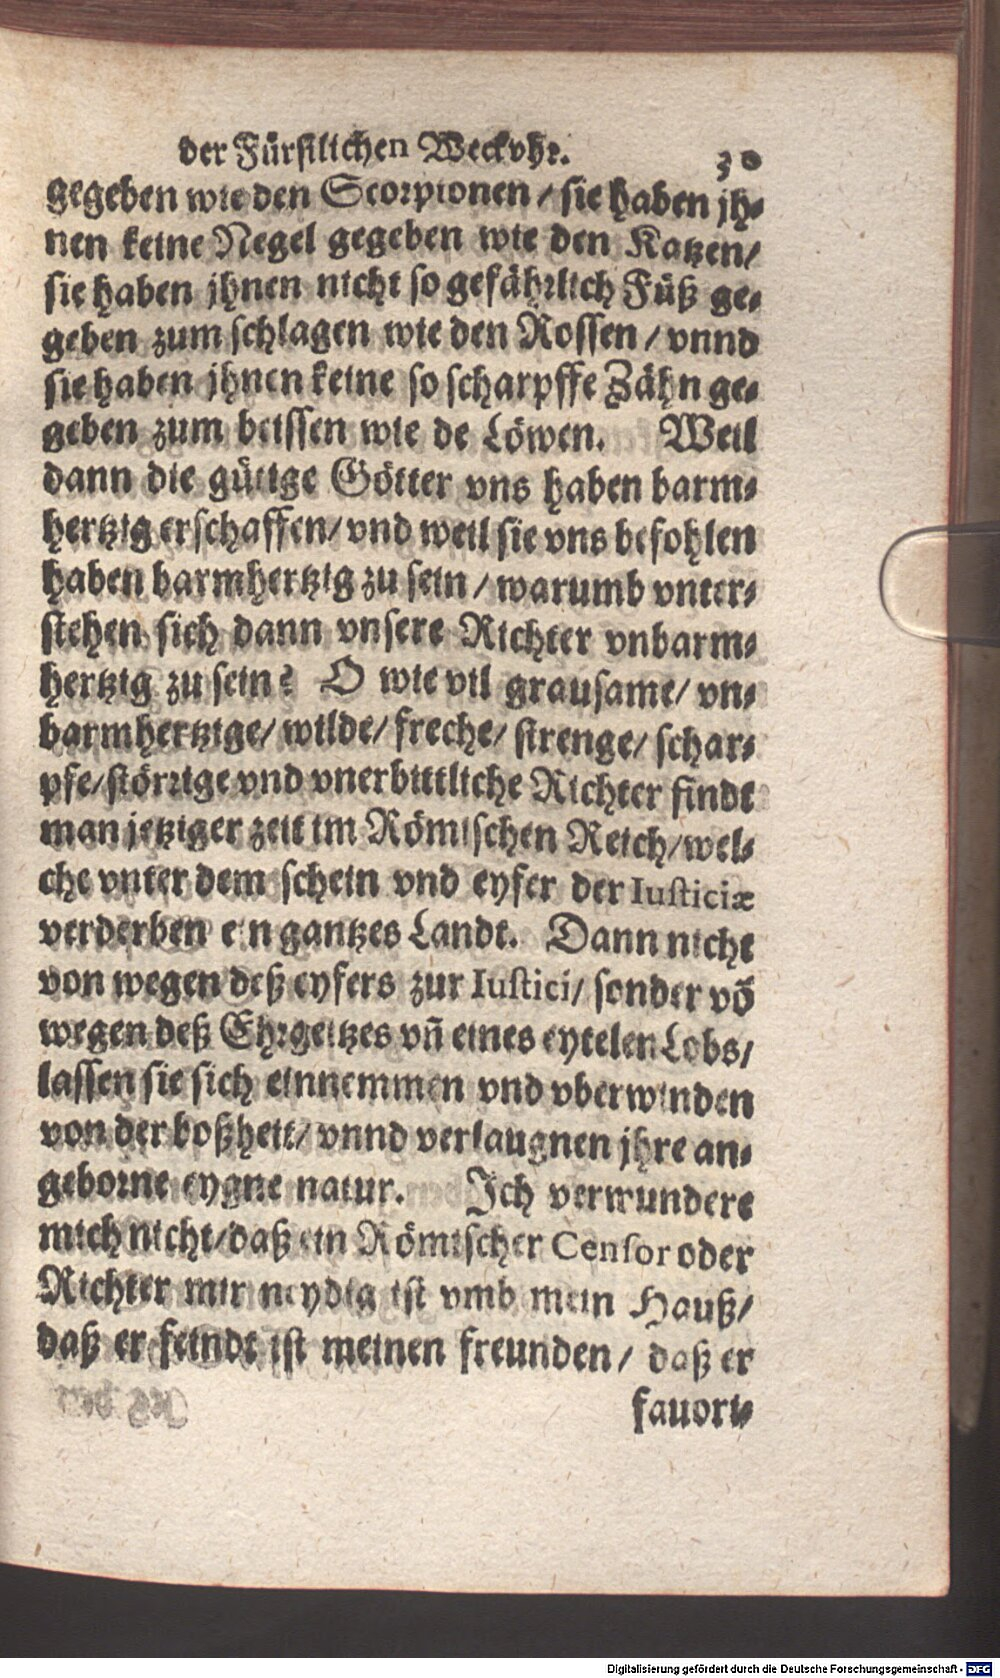 der Fürstlichen Weckvhr. 30
gegeben wie den Scorpionen / sie haben jh-
nen keine Negel gegeben wie den Katzen/
sie haben jhnen nicht so gefährlich Füß ge-
geben zum schlagen wie den Rossen / vnnd
sie haben jhnen keine so scharpffe Zähn ge-
geben zum beissen wie de Löwen. Weil
dann die gütige Götter vns haben barm-
hertzig erschaffen/ vnd weil sie vns befohlen
haben barmhertzig zu sein / warumb vnter-
stehen sich dann vnsere Richter vnbarm-
hertzig zu sein? O wie vil grausame/ vn-
barmhertzige/ wilde/ freche/ strenge/ schar-
pfe/ störrige vnd vnerbittliche Richter findt
man jetziger zeit im Römischen Reich/ wel-
che vnter dem schein vnd eyfer der Iusticiæ
verderben ein gantzes Landt. Dann nicht
von wegen deß eyfers zur Iustici/ sonder võ
wegen deß Ehrgeitzes vñ eines eytelen Lobs/
lassen sie sich einnemmen vnd vberwinden
von der boßheit/ vnnd verlaugnen jhre an-
geborne eygne natur. Ich verwundere
mich nicht/ daß ein Römischer Censor oder
Richter mir neydig ist vmb mein Hauß/
daß er feindt ist meinen freunden / daß er
fauori-
Digitalisierung gefördert durch die Deutsche Forschungsgemeinschaft - DFG